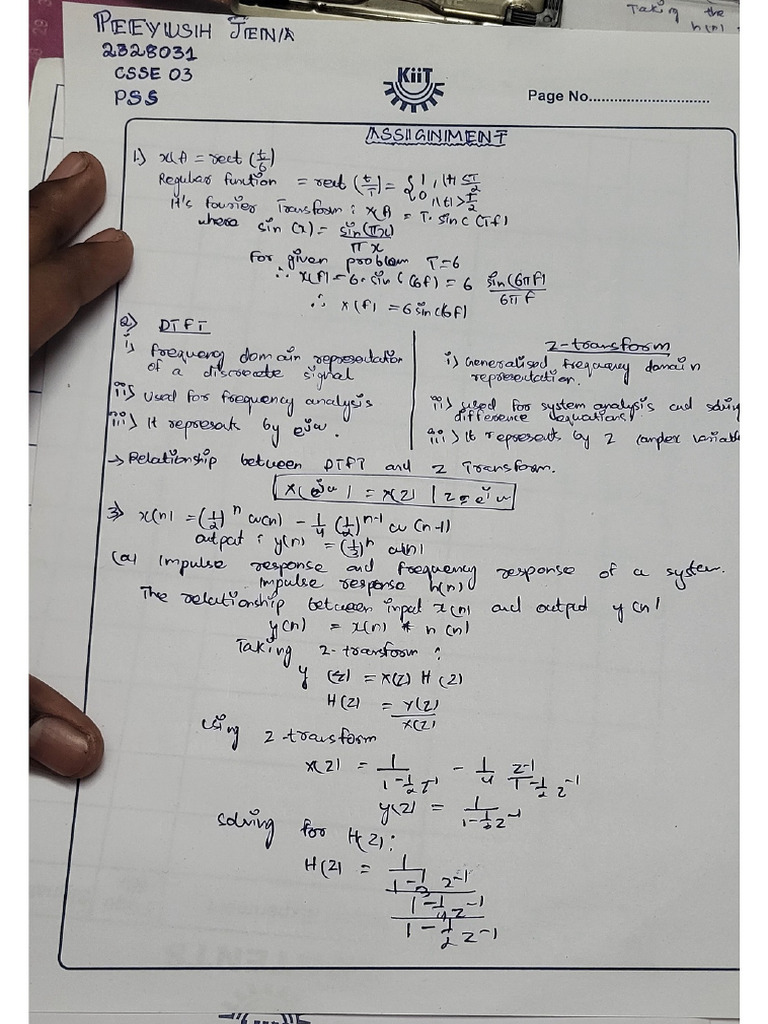 Taking the
h(n)
PEEYUSH JENA
2328031
CSSE 03
PSS
KiiT
Page No.............................
ASSIGNMENT
1.) x(t) = rect (t/6)
Regular function = rect (t/T) = { 1, |t| ≤ T/2
0, |t| > T/2
It's Fourier Transform : x(f) = T. sinc (Tf)
where sin (x) = sin(πx)/πx
For given problem T=6
∴ x(f) = 6. sinc (6f) = 6 sin(6πf)/6πf
∴ x(f) = 6 sinc(6f)
2) DTFT
i) frequency domain representation
of a discreate signal
ii) Used for frequency analysis
iii) It represents by e^jω.
Z-transform
i) Generalised frequency domain
representation.
ii) used for system analysis and solving
difference equations
iii) It represents by Z complex variable
→ Relationship between DTFT and Z Transform.
X(e^jω) = X(Z) | z = e^jω
3) x(n) = (1/2)^n u(n) - 1/4 (1/2)^n-1 u(n-1)
output : y(n) = (1/3)^n u(n)
(a) Impulse response and frequency response of a system.
Impulse response h(n)
The relationship between input x(n) and output y(n)
y(n) = x(n) * h(n)
Taking Z-transform :
Y(z) = X(z) H(z)
H(z) = Y(z)/X(z)
Using Z transform
X(z) = 1/(1-1/2 z^-1) - 1/4 z^-1/(1-1/2 z^-1)
Y(z) = 1/(1-1/3 z^-1)
Solving for H(z) :
H(z) = 1
1-1/3 z^-1
1-1/4 z^-1
1-1/2 z^-1